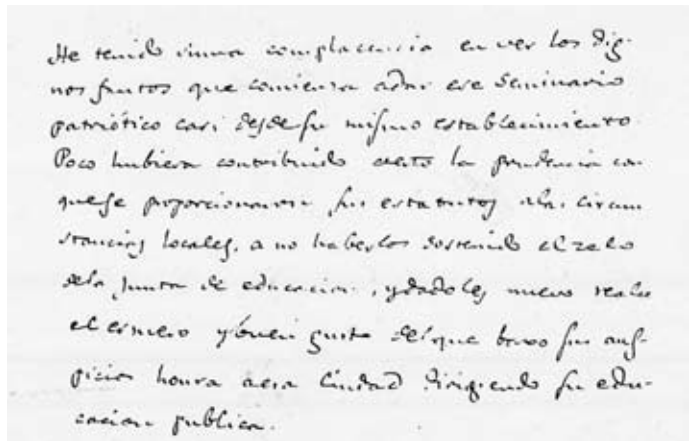 He tenido summa complacencia en ver los dig-
nos frutos que comienza adar ese Seminario
patriótico casi desde su mismo establecimiento.
Poco hubiera contribuido aesto la prudencia con
quese proporcionaron sus estatutos alas circun
stancias locales, a no haberlos sostenido el zelo
dela Junta de educacion, ydadoles nuevo realce
el esmero ybuen gusto del que baxo sus aus-
picios honra aesa Ciudad dirigiendo su edu-
cacion publica.